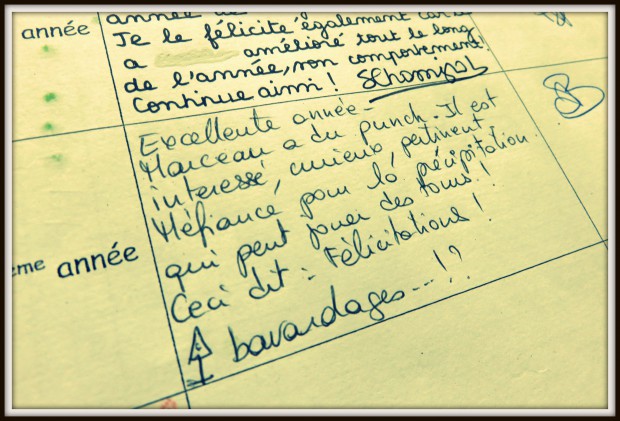 année
année
Je le félicite également car
a amélioré tout le long
de l'année, son comportement!
Continue ainsi!
ème année
Excellente année -
Marceau a du punch. Il est
interessé, curieux, pertinent.
Méfiance pour la précipitation
qui peut jouer des tours!
Ceci dit : Félicitations!
bavardages...!?